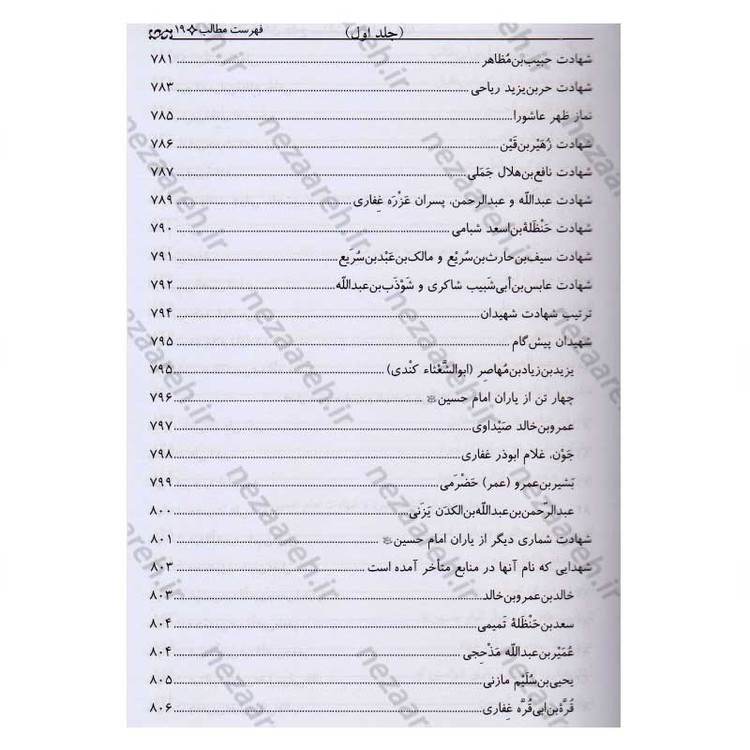 (جلد اول) فهرست مطالب ۱۹
شهادت حبیب‌بن‌مُظاهر ۷۸۱
شهادت حربن‌یزید ریاحی ۷۸۳
نماز ظهر عاشورا ۷۸۵
شهادت زُهَیْربن‌قَیْن ۷۸۶
شهادت نافع‌بن‌هلال جَمَلی ۷۸۷
شهادت عبداللّه و عبدالرحمن، پسران عَزْرَه غِفاری ۷۸۹
شهادت حَنْظَلةبن‌اسعد شبامی ۷۹۰
شهادت سیف‌بن‌حارث‌بن‌سُرَیْع و مالک‌بن‌عَبْدبن‌سُرَیع ۷۹۱
شهادت عابس‌بن‌أبی‌شَبیب شاکری و شَوْذَب‌بن‌عبداللّه ۷۹۲
ترتیب شهادت شهیدان ۷۹۴
شهیدان پیش‌گام ۷۹۵
یزیدبن‌زیادبن‌مُهاصِر (ابوالشَّعْثاء کنْدی) ۷۹۵
چهار تن از یاران امام حسین ۷۹۶
عمروبن‌خالد صَیْداوی ۷۹۷
جَوْن، غلام ابوذر غفاری ۷۹۸
بَشیربن‌عمرو (عمر) حَضْرَمی ۷۹۹
عبدالرّحمن‌بن‌عبداللّه‌بن‌الکدَن یَزَنی ۸۰۰
شهادت شماری دیگر از یاران امام حسین ۸۰۱
شهدایی که نام آنها در منابع متأخر آمده است ۸۰۳
خالدبن‌عمروبن‌خالد ۸۰۳
سعدبن‌حَنْظَلهٔ تَمیمی ۸۰۴
عُمَیْربن‌عبداللّه مَذْحِجی ۸۰۴
یحیی‌بن‌سُلَیْم مازنی ۸۰۵
قُرَّةبن‌ابی‌قُرَّه غِفاری ۸۰۶
nezaareh.ir